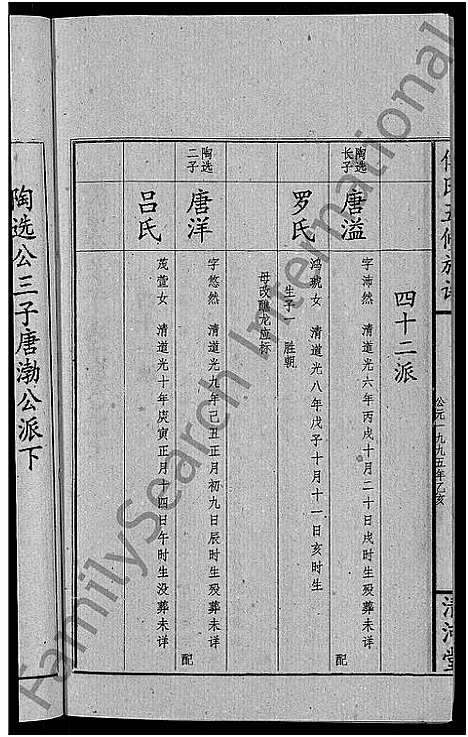 氏五修族谱
公元一九九五年乙亥
清河堂
四十二派
陶选长子
唐溢
字沛然 清道光六年丙戌十月二十日戌时生殁葬未详
配
罗氏
鸿琥女 清道光八年戊子十月十一日亥时生
生子 胜朝
母改醮龙应标
陶选二子
唐洋
字悠然 清道光九年己丑正月初九日辰时生殁葬未详
配
吕氏
茂萱女 清道光十年庚寅正月十四日午时生没葬未详
陶选公三子唐渤公派下
FamilySearch International